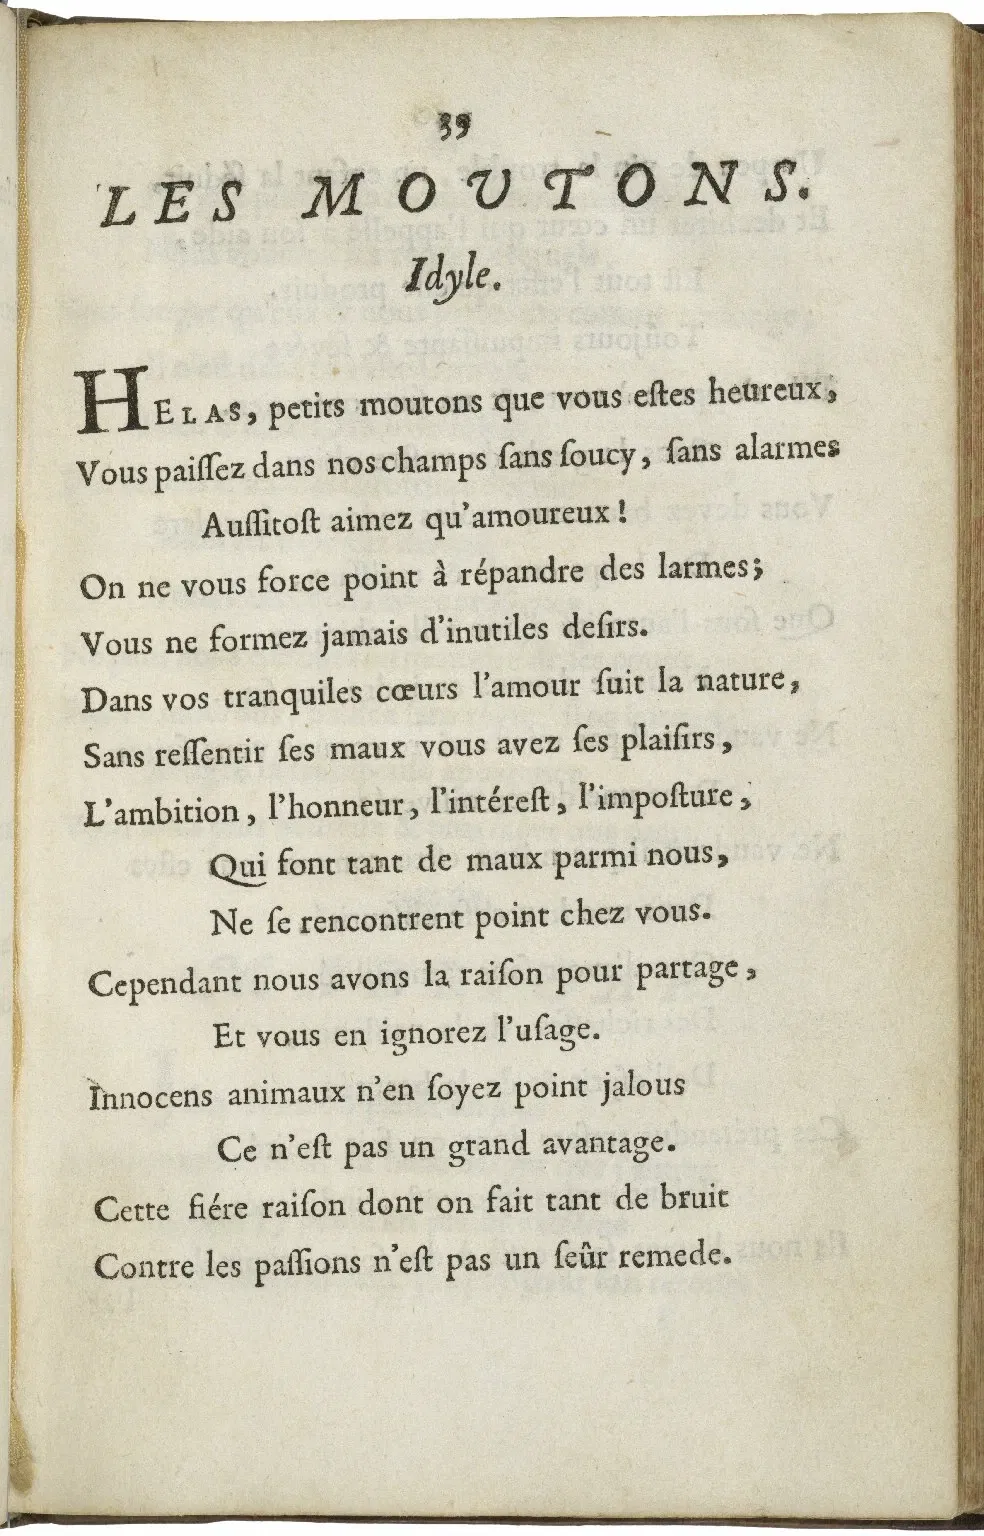 39
LES MOUTONS.
Idyle.
HELAS, petits moutons que vous eſtes heureux,
Vous paiſſez dans nos champs ſans ſoucy, ſans alarmes
Auſſitoſt aimez qu'amoureux !
On ne vous force point à répandre des larmes;
Vous ne formez jamais d'inutiles deſirs.
Dans vos tranquiles cœurs l'amour ſuit la nature,
Sans reſſentir ſes maux vous avez ſes plaiſirs,
L'ambition, l'honneur, l'intéreſt, l'impoſture,
Qui font tant de maux parmi nous,
Ne ſe rencontrent point chez vous.
Cependant nous avons la raiſon pour partage,
Et vous en ignorez l'uſage.
Innocens animaux n'en ſoyez point jalous
Ce n'eſt pas un grand avantage.
Cette fiére raiſon dont on fait tant de bruit
Contre les paſſions n'eſt pas un ſeûr remede.